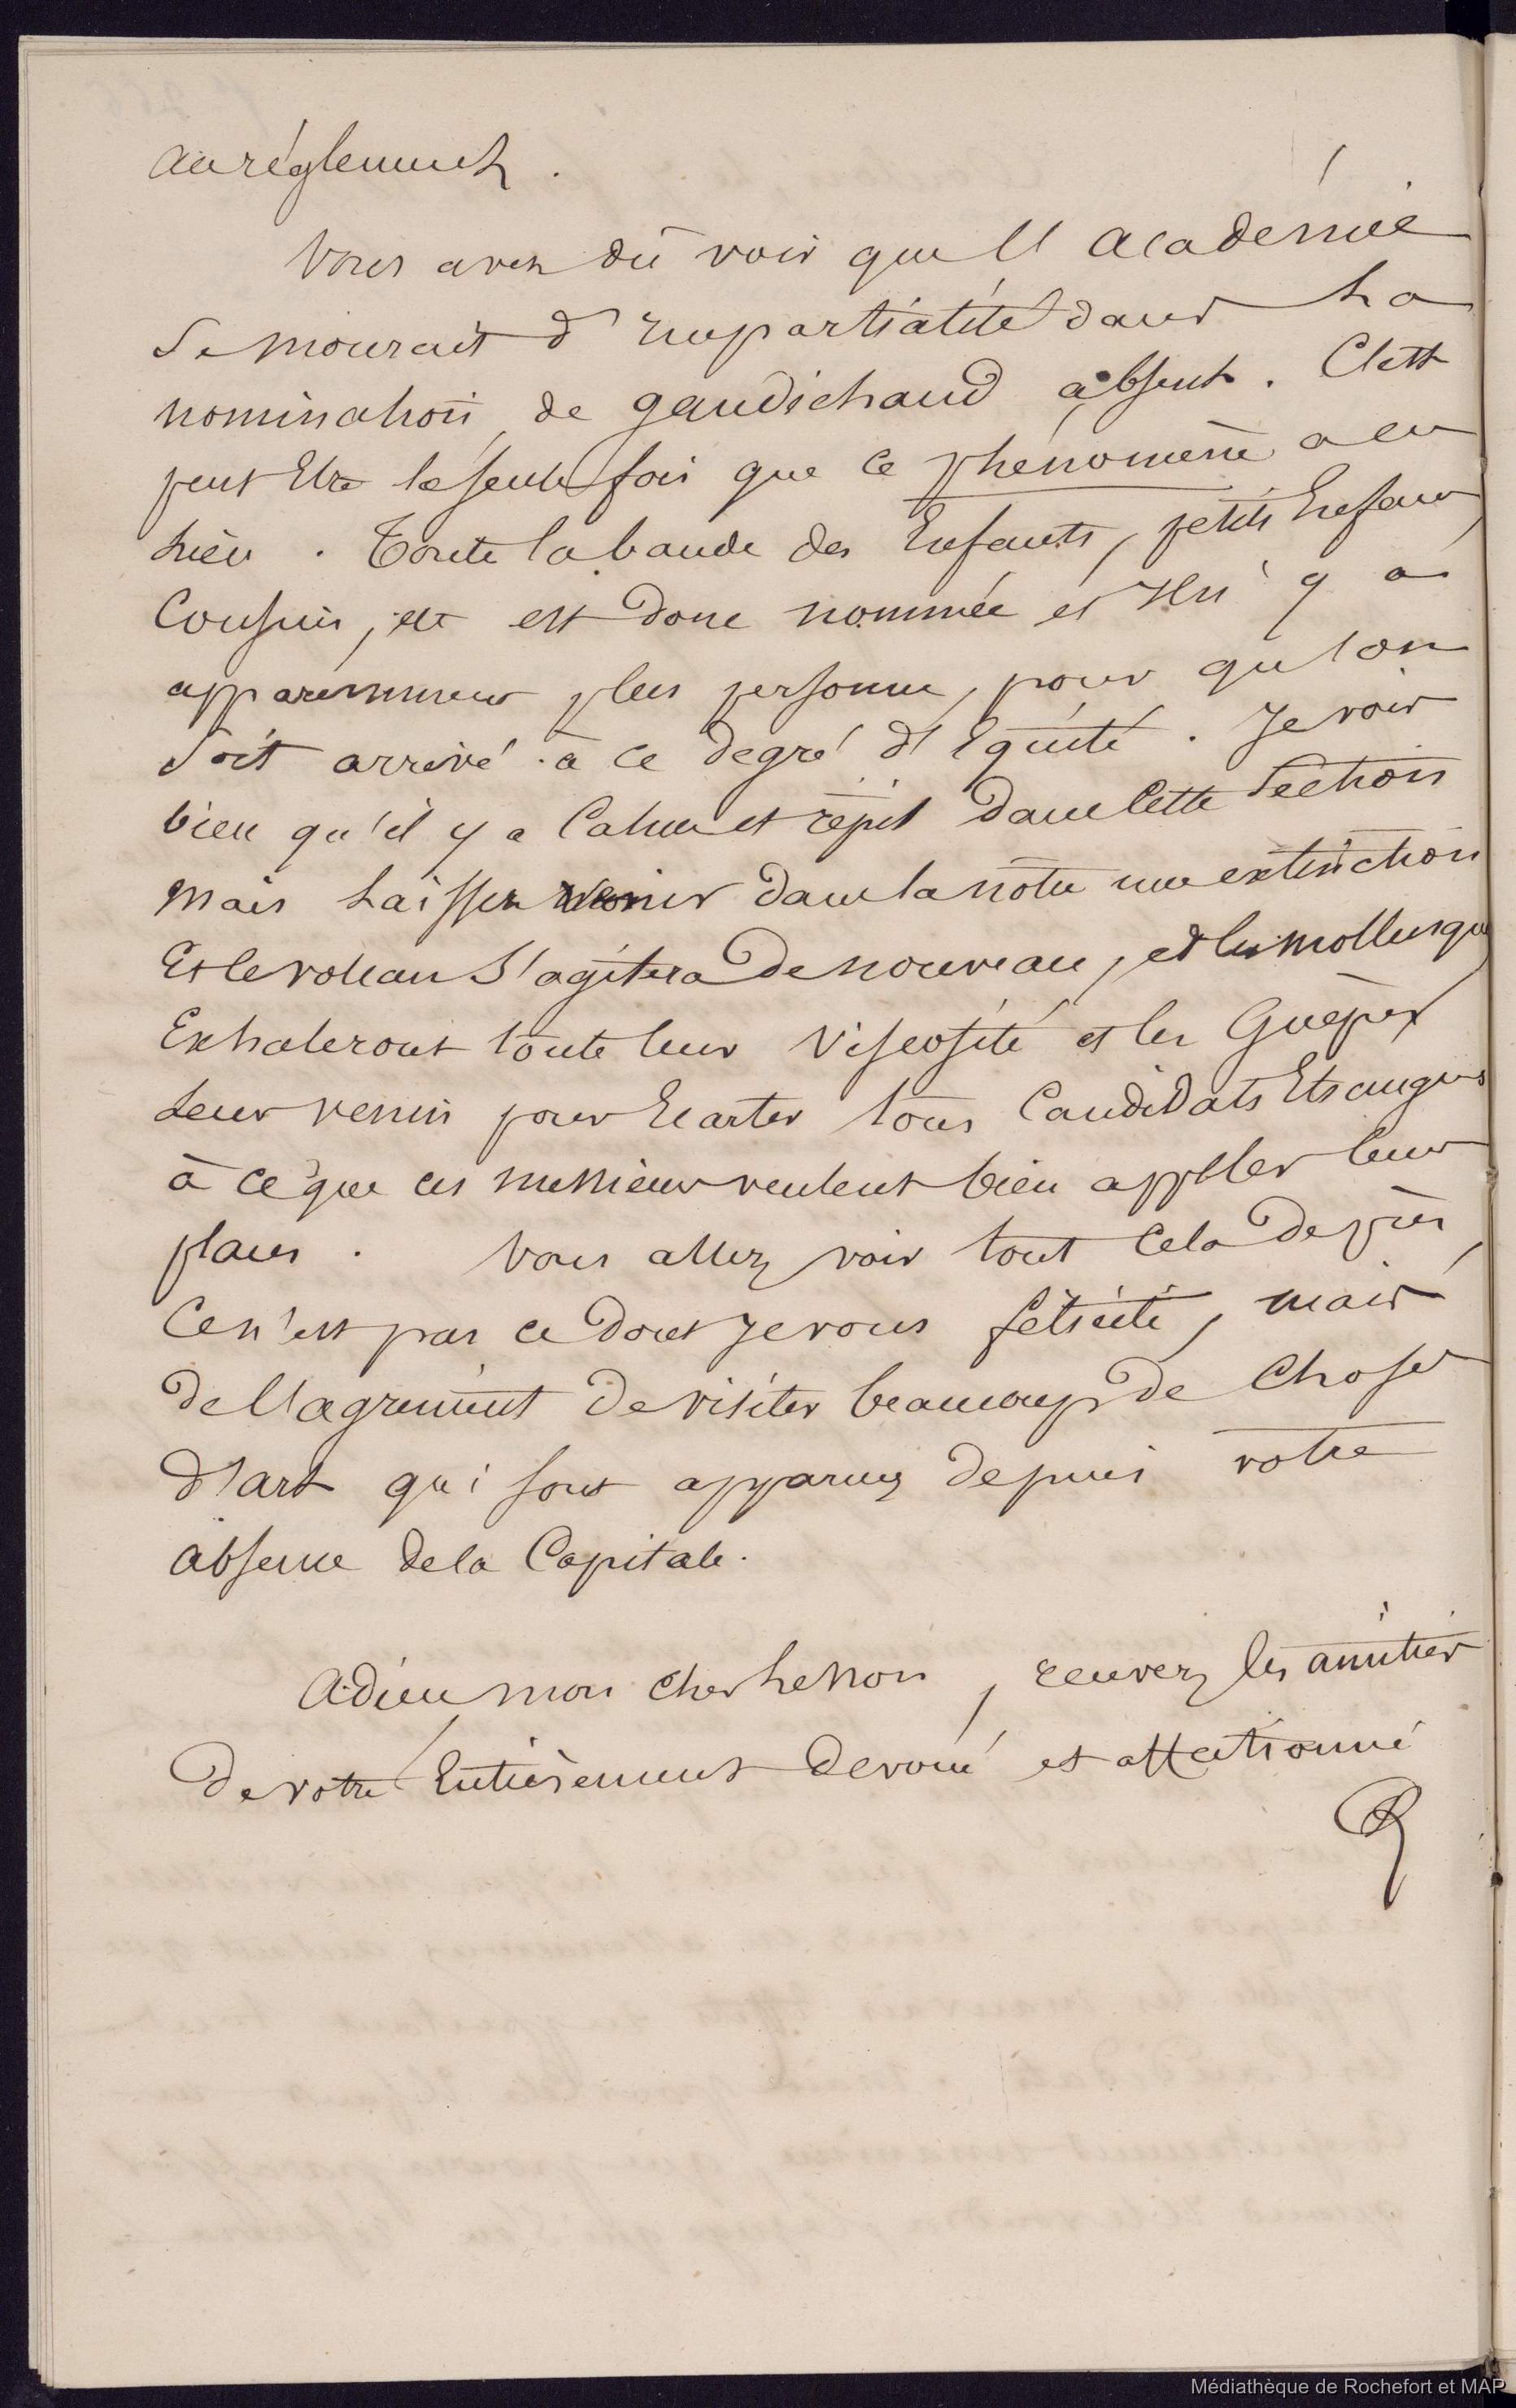 au réglement.
Vous avez dû voir que l'académie
se mourait d'impartialité dans la
nomination de gaudichaud absent. C'est
peut Etre la seule fois que ce phénomène a eu
lieu. Toute la bande des Enfants, petits Enfans,
Cousins, etc est donc nommée et il n'y a
apparemment plus personne, pour qu'on
soit arrivé à ce degré d'Equité. Je vois
bien qu'il y a Calme et répit dans Cette Section
mais laissez venir dans la notre une extinction
Et le volcan s'agitera de nouveau, et les mollusques
Exhaleront toute leur viscosité et les Guêpes
leur venin pour Ecarter tous Candidats Etrangers
à ce que ces messieurs veulent bien appeller leur
places. Vous allez voir tout Cela de près,
Ce n'est pas ce dont je vous félicite, mais
de l'agrément de visiter beaucoup de Choses
d'art qui sont apparues depuis votre
absence de la Capitale.
Adieu mon cher Lesson, recevez les amitiés
de votre Entièrement dévoué et affectionné
R
Médiathèque de Rochefort et MAP